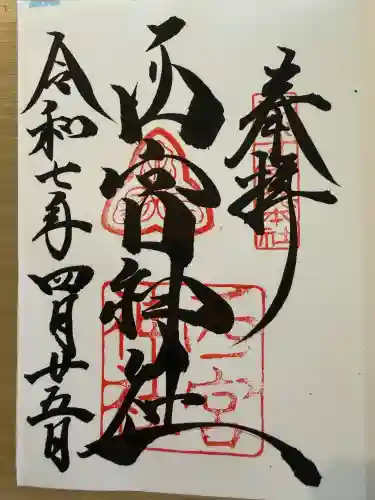 奉拝
西宮神社
令和七年四月廿五日
西宮神社